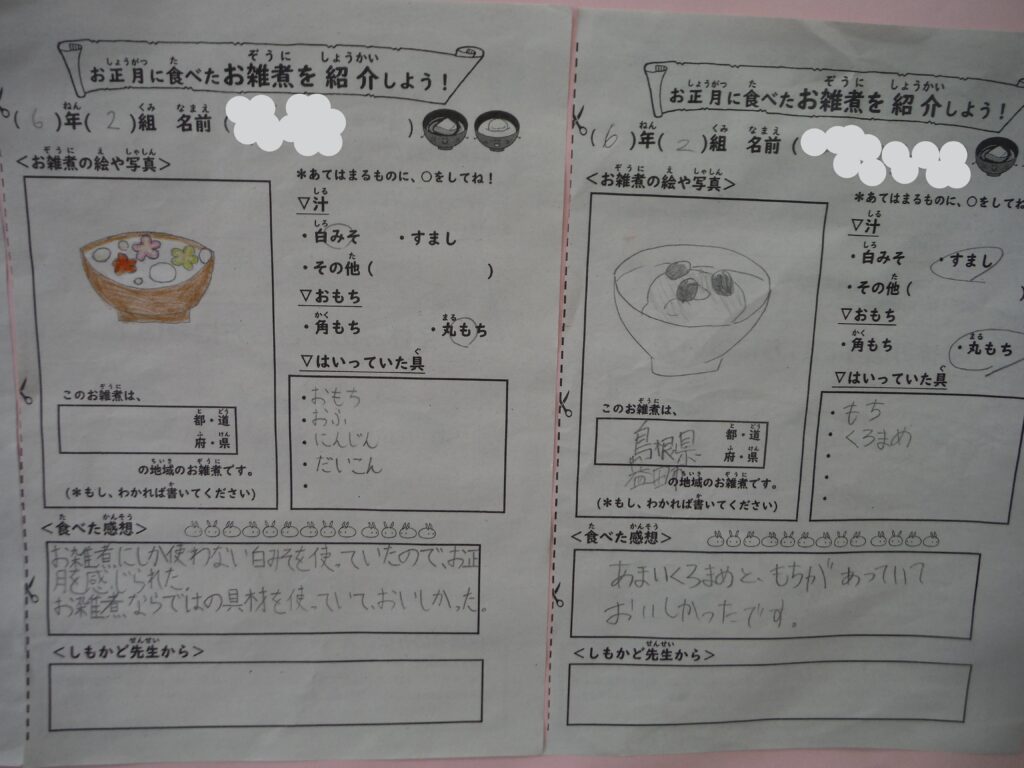 お正月に食べたお雑煮を紹介しよう！
(6)年(2)組 名前(        )
<お雑煮の絵や写真>
＊あてはまるものに、○をしてね！
▽汁
・白みそ ・すまし
・その他(        )
▽おもち
・角もち ・丸もち
▽はいっていた具
・おもち
・おふ
・にんじん
・だいこん
・
このお雑煮は、
都・道
府・県
の地域のお雑煮です。
(＊もし、わかれば書いてください)
<食べた感想>
お雑煮にしか使わない白みそを使っていたので、お正
月を感じられた。
お雑煮ならではの具材を使っていて、おいしかった。
<しもかど先生から>
お正月に食べたお雑煮を紹介しよう！
(6)年(2)組 名前(
<お雑煮の絵や写真>
＊あてはまるものに、○をしてね
▽汁
・白みそ ・すまし
・その他(
▽おもち
・角もち ・丸もち
▽はいっていた具
・もち
・くろまめ
・
・
・
このお雑煮は、
島根県 都・道
府・県
益田市の地域のお雑煮です。
(＊もし、わかれば書いてください)
<食べた感想>
あまいくろまめと、もちがあっていて
おいしかったです。
<しもかど先生から>